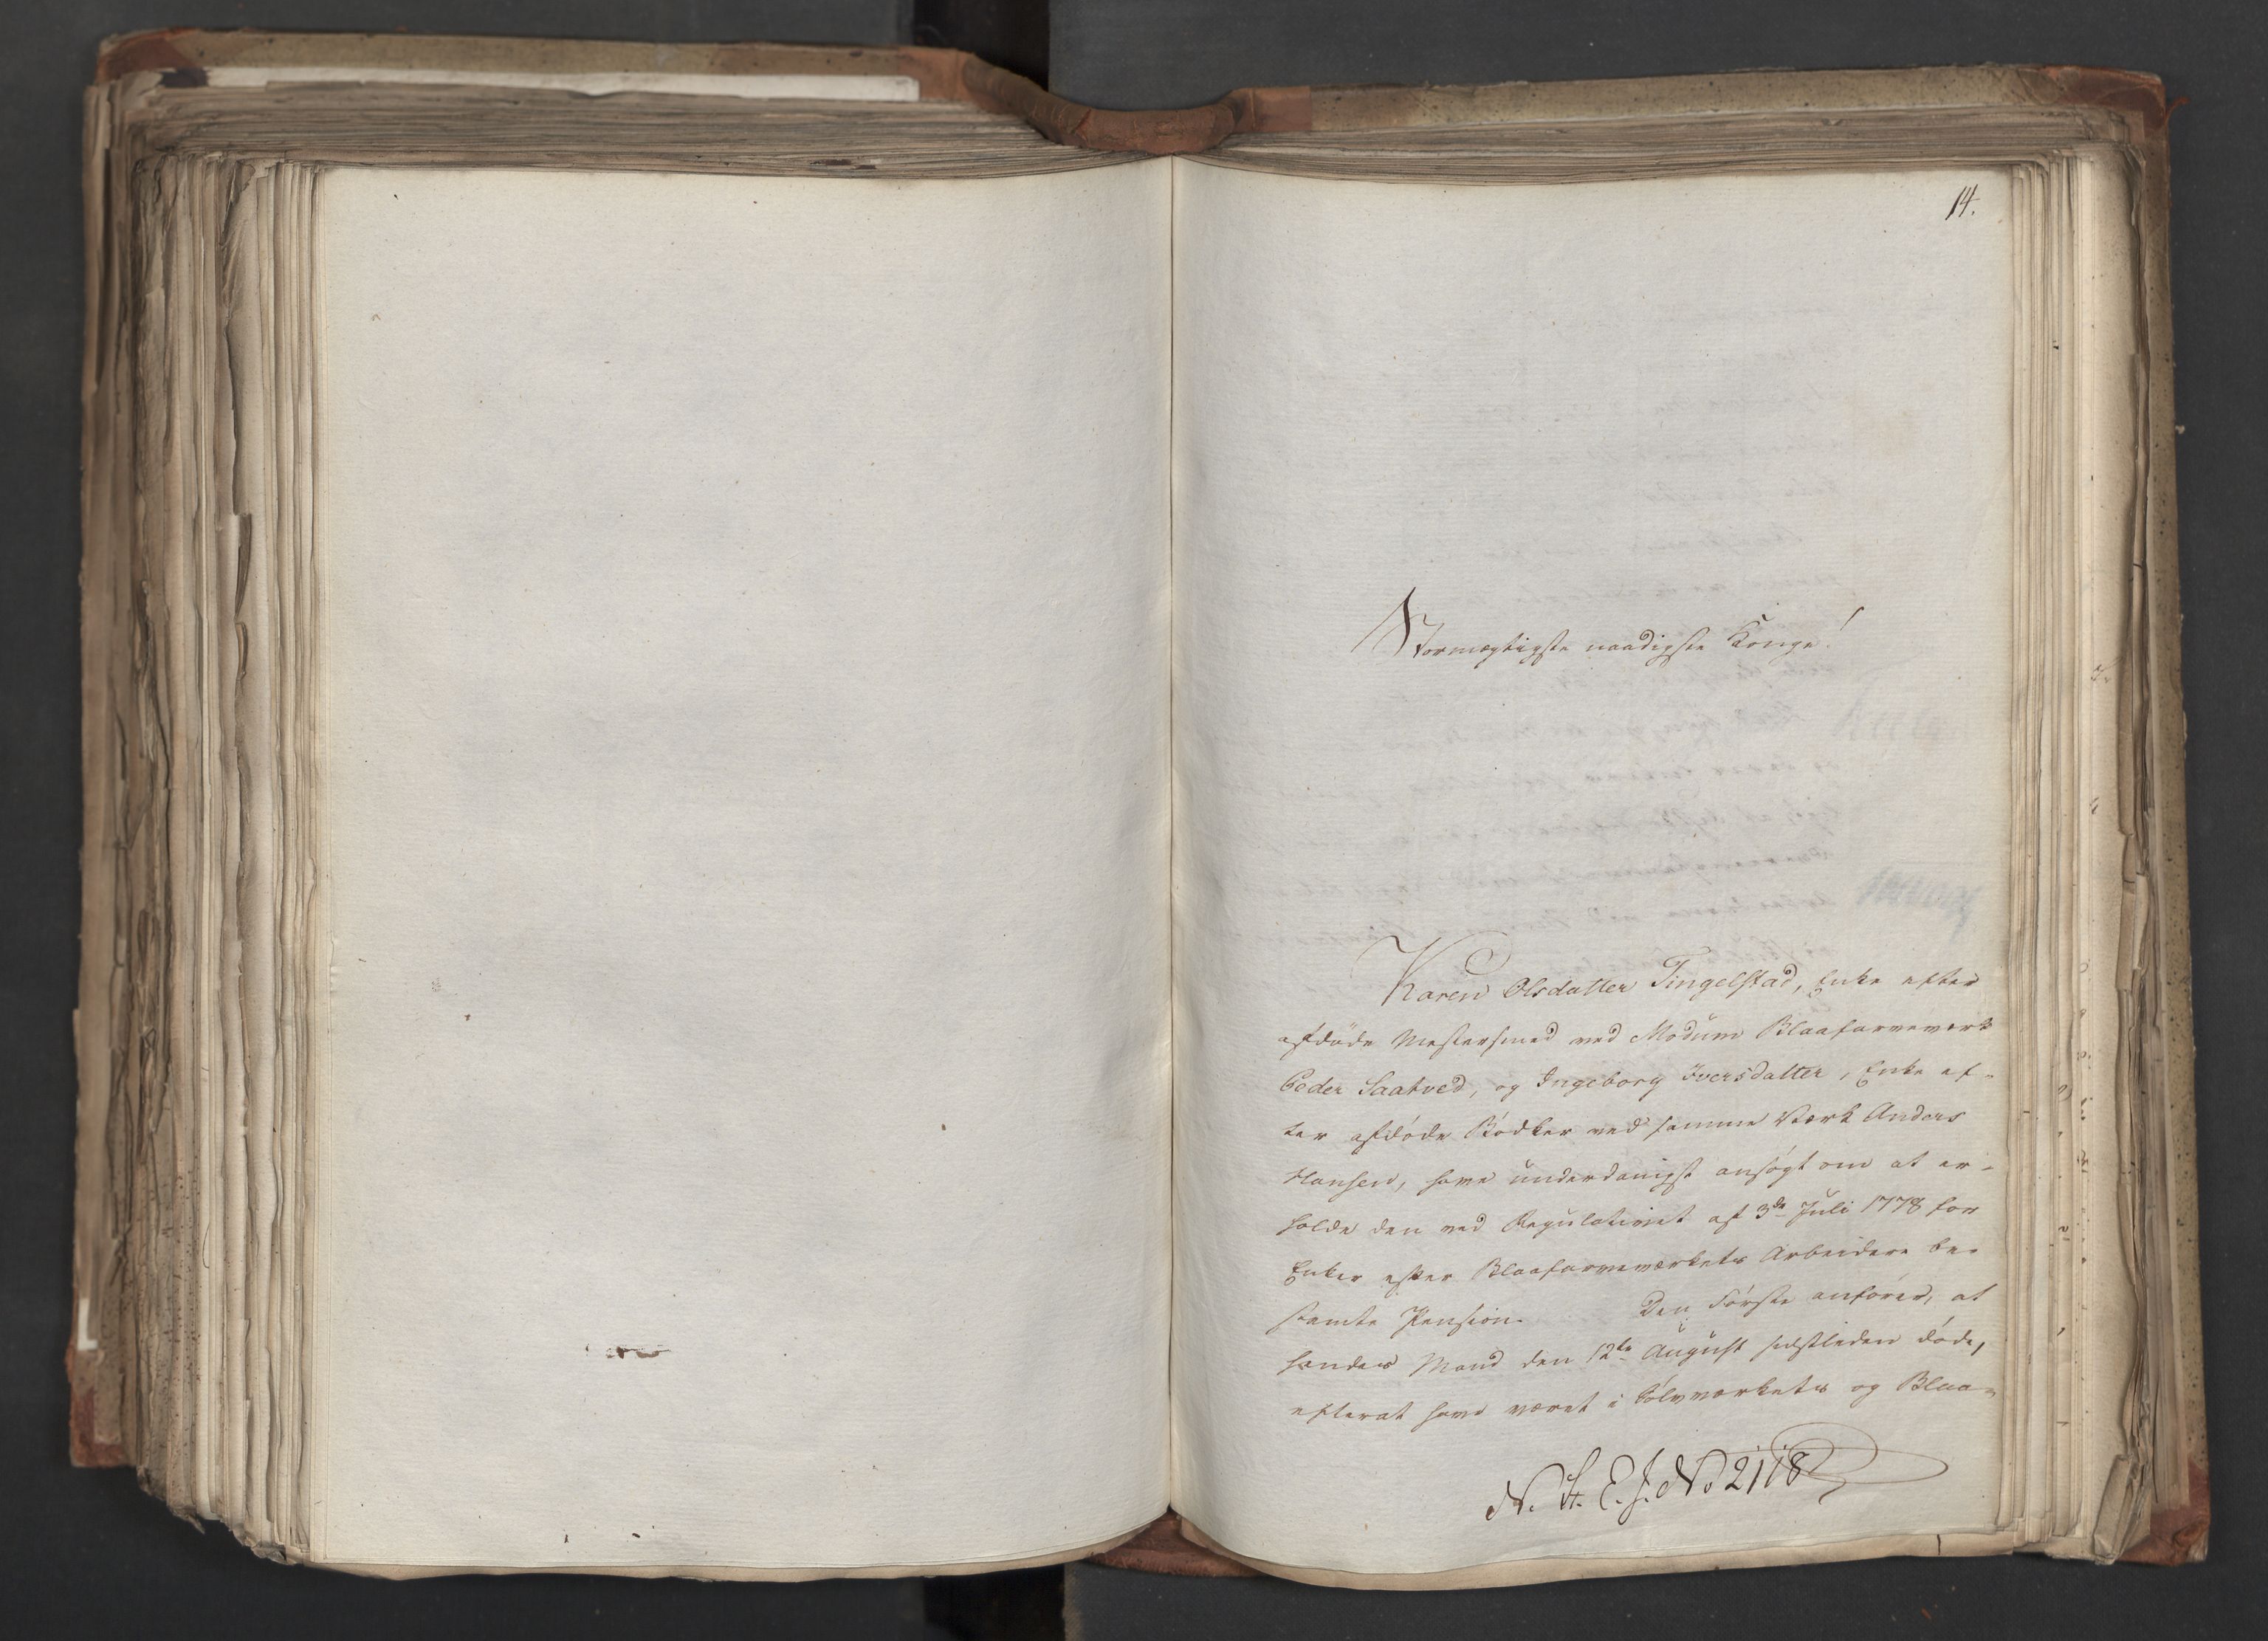 14.
Stormægtigste naadigste Konge!
Karen Olsdatter Tingelstad, Enke efter
afdøde Mestersmed ved Modum Blaafarveværk
Peder Saatved, og Ingeborg Iversdatter, Enke ef-
ter afdøde Bødker ved samme Værk Anders
Hansen, have underdanigst ansøgt om at er-
holde den ved Regulativet af 3de Juli 1778 for
Enker efter Blaafarveværkets Arbeidere be-
stemte Pension. Den Første anfører, at
hendes Mand den 12te August sidstleden døde,
efterat have været i Sølvværkets og Blaa-
N. St. E. J. No 2118